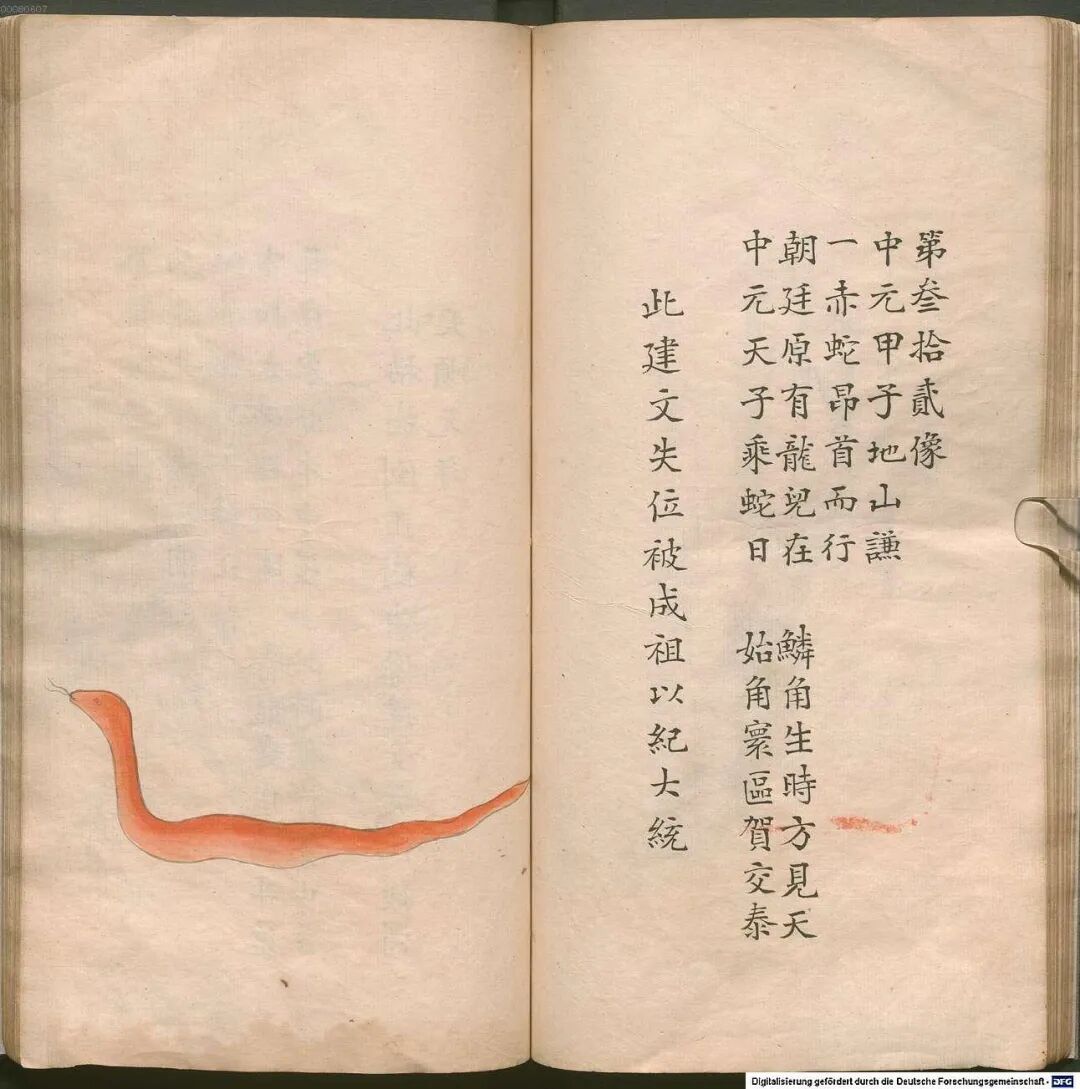 00080607
第叁拾貳像
中元甲子地山謙
一赤蛇昂首而行
朝廷原有龍兒在 鱗角生時方見天
中元天子乘蛇日 始角寰區賀交泰
此建文失位被成祖以紀大統
Digitalisierung gefördert durch die Deutsche Forschungsgemeinschaft - DFG